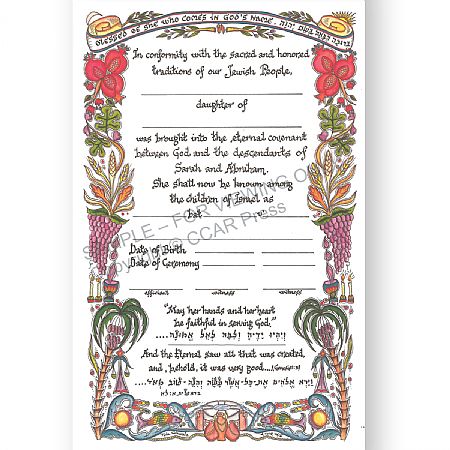 Blessed be she who comes in God's name.
In conformity with the sacred and honored
traditions of our Jewish People,
daughter of
was brought into the eternal covenant
between God and the descendants of
Sarah and Abraham.
She shall now be known among
the children of Israel as
bat
SAMPLE – FOR VIEWING
CCAR Press
Date of Birth
Date of Ceremony
officiant witness witness
"May her hands and her heart
be faithful in serving God."
And the Eternal saw all that was created,
and, behold, it was very good...